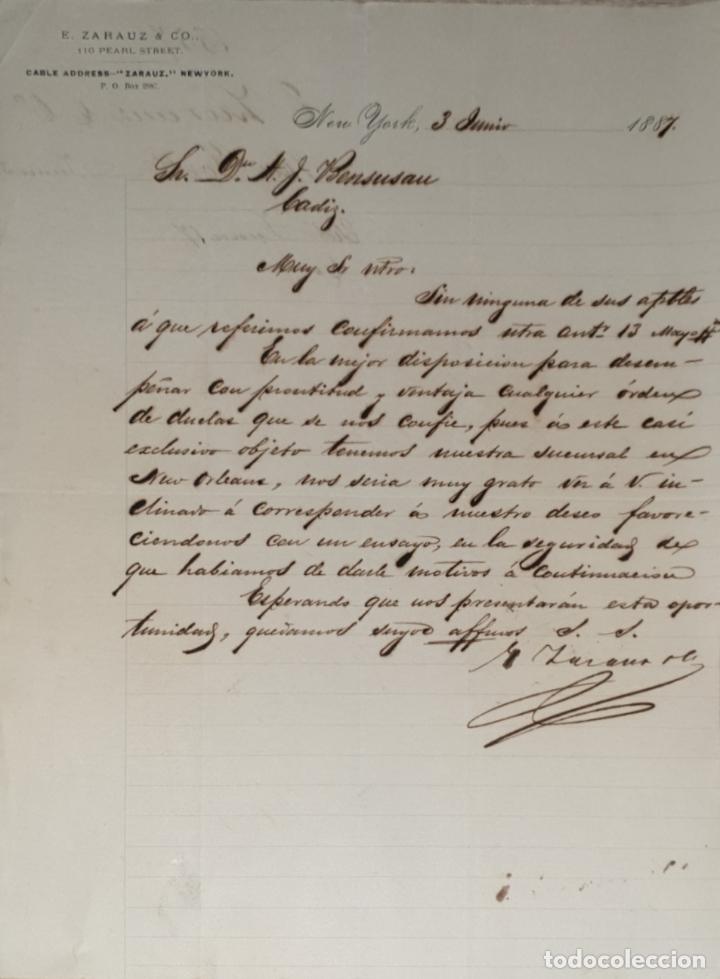 E. ZARAUZ & CO.,
110 PEARL STREET.
CABLE ADDRESS—"ZARAUZ," NEWYORK.
P. O. Box
New York, 3 Junio 1887.
Sr. Dn. J. Bensusan
Cadiz.
Muy Sr ntro:
Sin ninguna de sus aptbles
á que referirnos confirmamos ntra antr 13 Mayo
En la mejor disposicion para desem-
peñar con prontitud y ventaja cualquier órden
de duelas que se nos confie, pues á este casi
exclusivo objeto tenemos nuestra sucursal en
New Orleans, nos seria muy grato ver á V. in-
clinado á corresponder á nuestro deseo favore-
ciendonos con un ensayo, en la seguridad de
que habiamos de darle motivos á continuacion
Esperando que nos presentarán esta opor-
tunidad, quedamos suyos affmos S. S.
E Zarauz &
todocoleccion